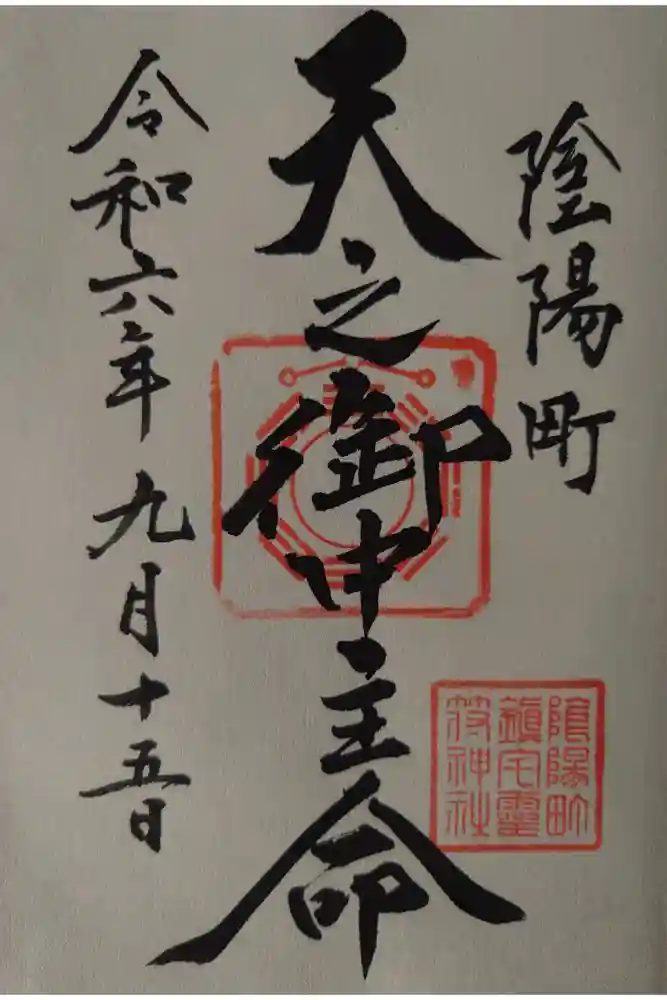 陰陽町
天之御中主命
令和六年九月十五日
陰陽町
鎮宅霊
符神社